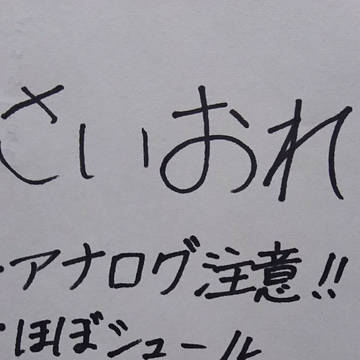 さいおれ
・アナログ注意!!
・ほぼシュール